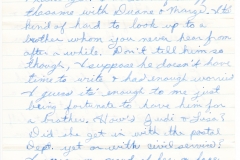 thaoms with Duane & Margi. It's
kind of hard to look up to a
brother whom you never hear from
after a while. Don't tell him so
though, I suppose he doesn't have
time to write & has enough worries
I guess it's enough to me just
being fortunate to have him for
a brother. How's Judi & Lisa?
Did she get in with the postal
Dept. yet or with civil service?